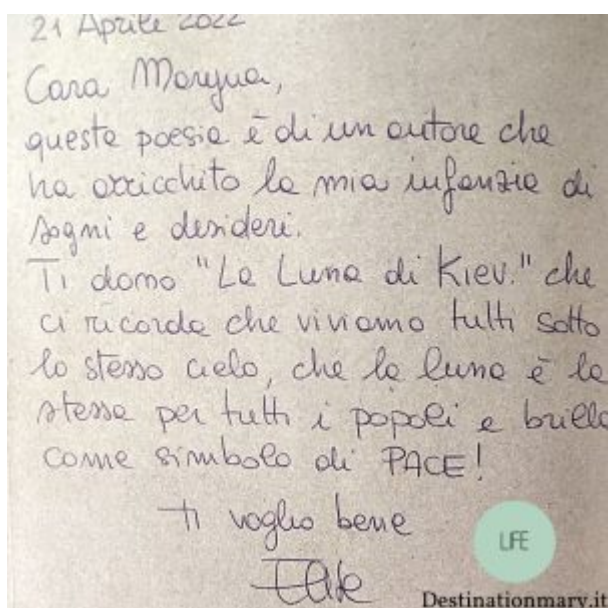 21 Aprile 2022
Cara Morgna,
questa poesia è di un autore che
ha arricchito la mia infanzia di
sogni e desideri.
Ti dono "La Luna di Kiev." che
ci ricorda che viviamo tutti sotto
lo stesso cielo, che la luna è la
stessa per tutti i popoli e brilla
come simbolo di PACE!
Ti voglio bene
LIFE
Destinationmary.it